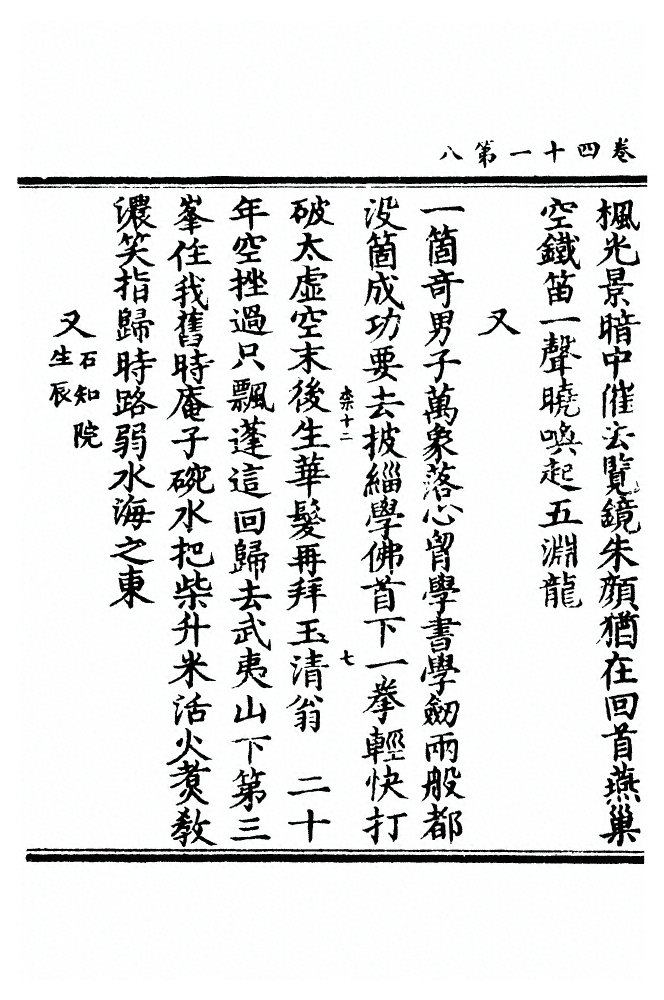 卷四十一第八
楓光景暗中催去覽鏡朱顔猶在回首燕巢
空鐵笛一聲曉喚起五淵龍
又
一箇奇男子萬象落心胷學書學劒兩般都
没箇成功要去披緇學佛首下一拳輕快打
柰十二
七
破太虚空末後生華髮再拜玉清翁 二十
年空挫過只飄蓬這回歸去武夷山下第三
峯住我舊時庵子碗水把柴升米活火煑教
濃笑指歸時路弱水海之東
又石知院生辰